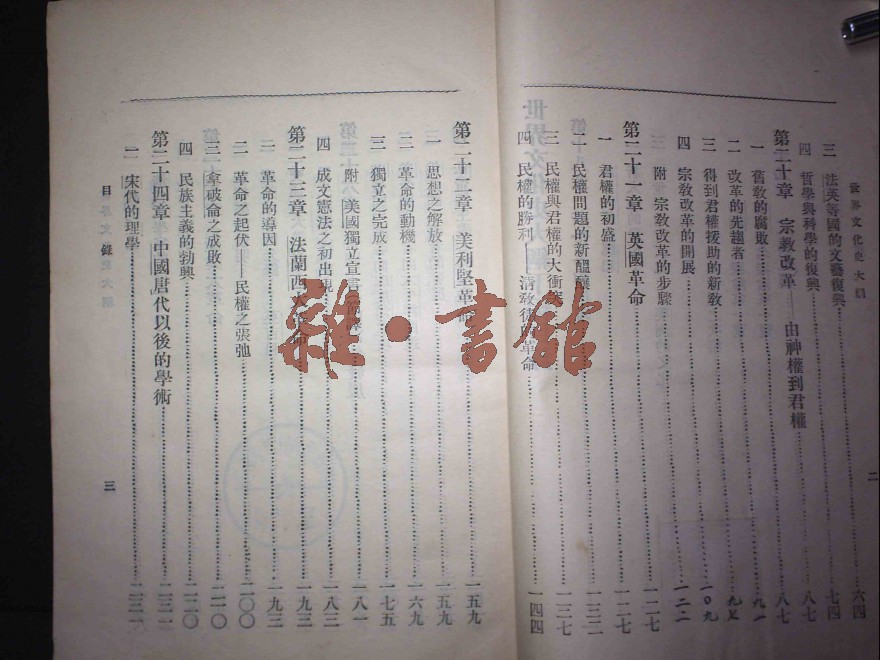 世界文化史大綱
二
三 法英等國的文藝復興 六四
四 哲學與科學的復興 七四
第二十章 宗教改革——由神權到君權 八七
一 舊敎的腐敗 八七
二 改革的先趨者 九一
三 得到君權援助的新敎 九七
四 宗敎改革的開展 一〇九
附 宗敎改革的步驟 一二二
第二十一章 英國革命 一二七
一 君權的初盛 一二七
二 民權問題的新醞釀 一三二
三 民權與君權的大衝突 一三七
四 民權的勝利——清敎徒革命 一四四
第二十二章 美利堅革命 一五九
一 思想之解放 一五九
二 革命的動機 一六九
三 獨立之完成 一七五
附 美國獨立宣言 一八一
四 成文憲法之初出現 一八三
第二十三章 法蘭西大革命 一九三
一 革命的導因 一九三
二 革命之起伏——民權之張弛 二〇〇
三 拿破侖之成敗 二一〇
四 民族主義的勃興 二二〇
第二十四章 中國唐代以後的學術 二三一
一 宋代的理學 二三一
目錄
三
雜·書館